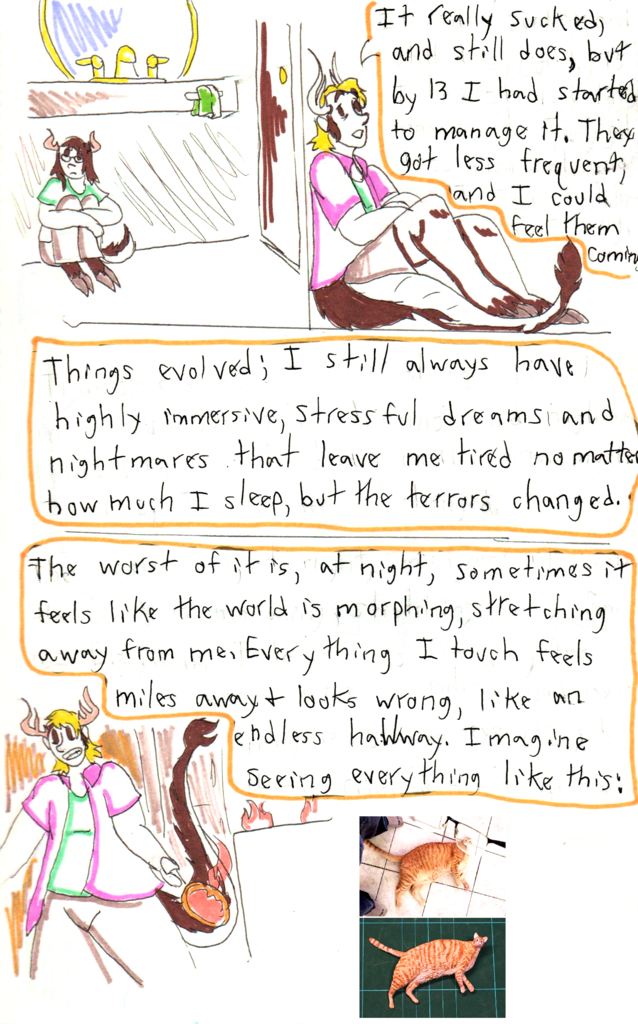 It really sucked,
and still does, but
by 13 I had started
to manage it. They
got less frequent,
and I could
feel them
coming
Things evolved; I still always have
highly immersive, stressful dreams and
nightmares that leave me tired no matter
how much I sleep, but the terrors changed.
The worst of it is, at night, sometimes it
feels like the world is morphing, stretching
away from me. Everything I touch feels
miles away + looks wrong, like an
endless hallway. Imagine
seeing everything like this: